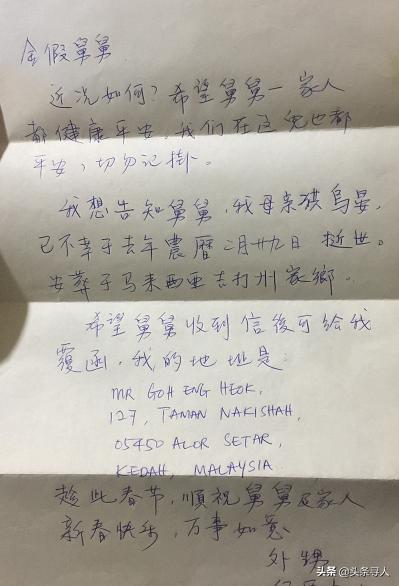 金假舅舅
近况如何？希望舅舅一家人
都健康平安，我们在这儿也都
平安，切勿记掛。
我想告知舅舅，我母亲琪烏晏，
已不幸于去年農曆二月廿九日逝世。
安葬于马来西亚吉打州家鄉。
希望舅舅收到信後可给我
覆函，我的地址是：
MR GOH ENG HEOK,
127, TAMAN NAKISHAH,
05450 ALOR SETAR,
KEDAH, MALAYSIA.
趁此春节，順祝舅舅及家人
新春快乐，万事如意
外甥
头条 @头条寻人